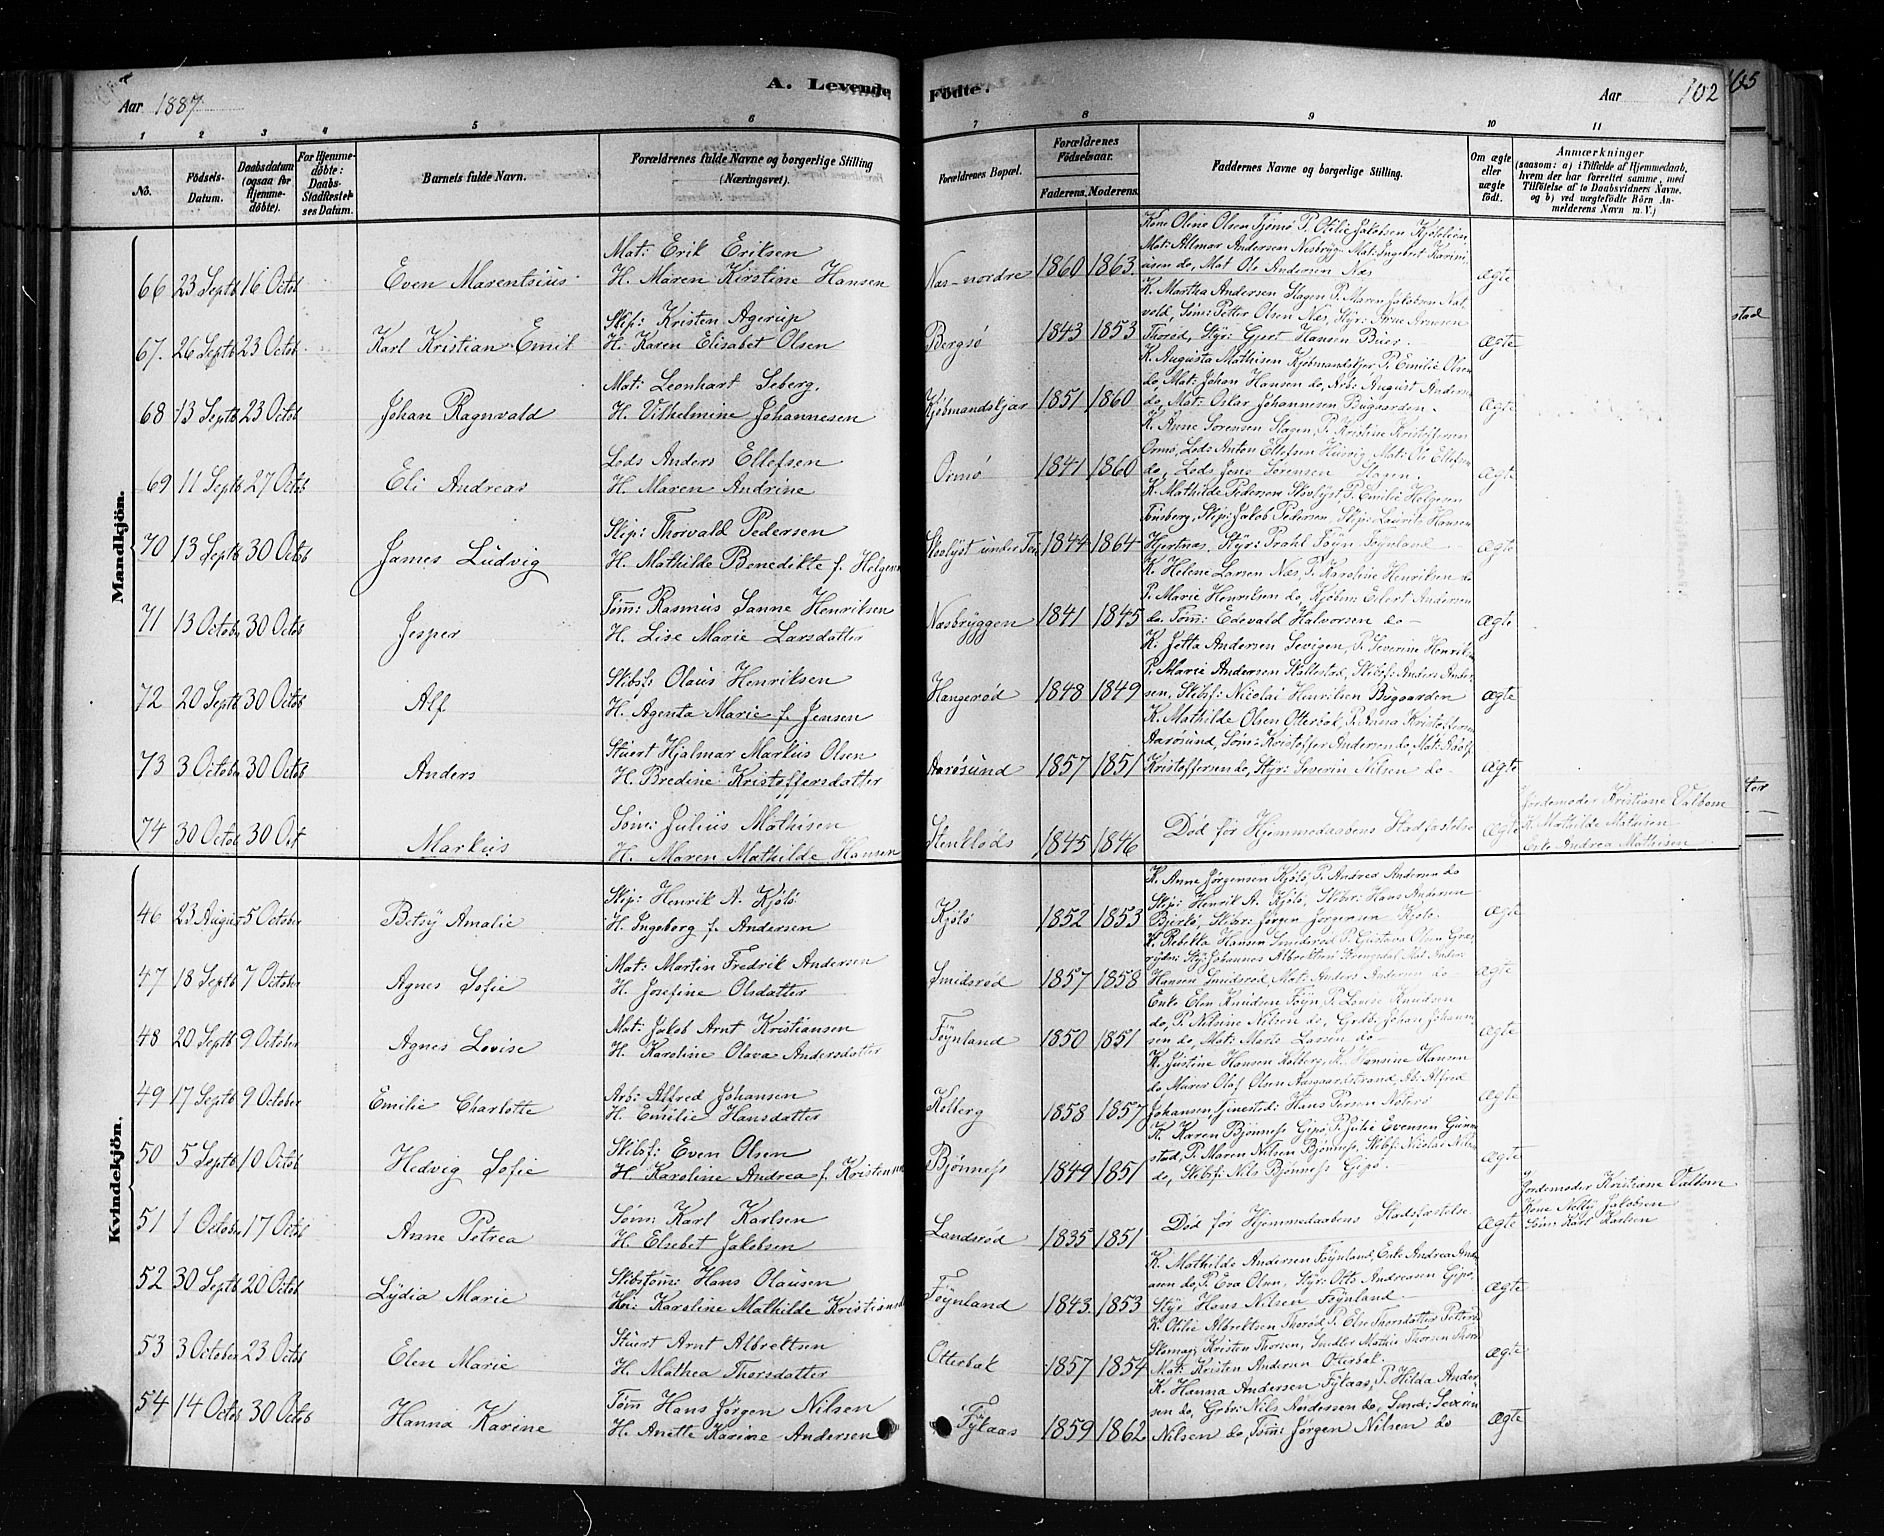 Aar 1887.
A. Levende Födte.
Aar 102
105
1 2 3 4 5 6 7 8 9 10 11
No.
Födsels-Datum.
Daabsdatum (ogsaa for Hjemme-döbte).
For Hjemme-döbte: Daabs-Stadfæstel-ses Datum.
Barnets fulde Navn.
Forældrenes fulde Navne og borgerlige Stilling (Næringsvei).
Forældrenes Bopæl.
Forældrenes Födselsaar.
Faderens. Moderens.
Faddernes Navne og borgerlige Stilling.
Om ægte eller uægte födt.
Anmærkninger
(saasom: a) i Tilfælde af Hjemmedaab, hvem der har forrettet samme, med Tilföielse af to Daabsvidners Navne, og b) ved uægtefödte Börn An-melderens Navn m. V.)
Mandkjön.
66 23 Septb 16 Octob Even Marentsius Mat: Erik Eriksen
H. Maren Kirstine Hansen Næs nordre 1860 1863. ægte
Kone Oline Olsen Tjømø P. Otilie Jakobsen
Mat: Altmar Andersen Nesbrygg. Mat: Ingebret
do, Mat Ole Andersen Næs
67. 26 Septb 23 Octob Karl Kristian Emil Skip: Kristen Agerup
H. Karen Elisabet Olsen Bergsø 1843 1853 ægte
K. Martha Andersen Slagen P. Maren Jakobsen
Søm: Petter Olsen Næs, Styr: Arne Arnesen
Thorød, Styr: Gjert Hansen Buer.
68 13 Septb 23 Octob Johan Ragnvald Mat: Leonhart Seberg.
H. Vilhelmine Johannesen Kjøbmandskjær 1851 1860 ægte
K. Augusta Mathisen Kjøbmandskjer P. Emilie Olsen
do, Mat: Johan Hansen do, Arb: August Andersn
do, Mat: Oskar Johannesen Bugaarden
69 11 Septb 27 Octob Eli Andreas Lods Anders Ellefsen
H. Maren Andrine Ormø 1841 1860 ægte
K. Anne Sørensen Slagen, P. Kristine Kristoffersen
Ormø, Lods Anton Ellefsen Husvig, Mat: Ole Ellefsen
do, Lods Jens Sørensen
70 13 Septb 30 Octob James Ludvig Skip: Thorvald Pedersen
H. Mathilde Benedikte f. Helgesen Skovlyst under 1844 1864 ægte
K. Mathilde Pedersen Skovlyst P. Emilie Helgesen
Tønsberg, Skip: Jakob Pedersen, Skip: Laurits Hansen
Hjertnæs, Styr: Prahl Føyn Føynland
71 13 October 30 Octob Jesper Tømr: Rasmus Sanne Henriksen
H. Lise Marie Larsdatter Næsbryggen 1841 1845 ægte
K. Helene Larsen Næs, P. Karoline Henriksen do
P. Marie Henriksen do, Kjøbm: Eilert Andersen
do, Tøm: Edevald Halvorsen do
72 20 Septb 30 Octob Alf Skibsf: Olaus Henriksen
H. Agenta Marie f. Jensen Hangerød 1848 1849 ægte
K. Jetta Andersen Sevigen, P. Severine Henriksn
P. Marie Andersen Skallestad, Skibsf: Anders Ander-
sen, Skibsf: Nicolai Henriksen Bugaarden
73 3 October 30 Octob Anders Stuert Hjalmar Markus Olsen
H. Bredine Kristoffersdatter Aarøsund 1857 1851 ægte
K. Mathilde Olsen Otterbæk, P. Anna Kristoffersen
Aarøsund, Søm: Kristoffer Andersen do, Mat: Adolf
Kristoffersen do, Styr: Severin Nilsen do
74 30 Octob 30 Oct Markus Søm: Julius Mathisen
H. Maren Mathilde Hansen Stenklöds 1845 1846 Død før Hjemmedaabens Stadfæstelse ægte
Jordemoder Kristiane Valbom
K. Mathilde Mathisen
Enke Andrea Mathisen
Kvindekjön.
46 23 August 5 October Betsy Amalie Skip: Henrik A. Kjølø
H. Ingeborg f. Andersen Kjølø 1852 1853 ægte
K. Anne Jørgensen Kjølø P. Andrea Andersen do
Skip: Henrik A. Kjølø, Skibsr: Hans Andersen
Bjerkø, Skibsr: Jørgen Jørgensen Kjølø.
47 18 Septb 7 October Agnes Sofie Mat: Martin Fredrik Andersen
H. Josefine Olsdatter Smidsrød 1857 1858 ægte
K. Rebekka Hansen Smidsrød P. Gustava Olsen
Styr: Johannes Albrektsen Mat: Anders
Hansen Smidsrød, Mat: Anders Andersen do
48 20 Septb 9 October Agnes Lovise Mat: Jakob Arnt Kristiansen
H. Karoline Olava Andersdatter Føynland 1850 1851 ægte
Enke Elen Knudsen Føyn P. Lovise Knudsen
do, P. Nilsine Nilsen do, Grdb: Johan Johann-
sen do, Mat: Larsen do
49 17 Septb 9 October Emilie Charlotte Arb: Alfred Johansen
H. Emilie Hansdatter Kolberg 1858 1857 ægte
K. Justine Hansen Kolberg, K. Hansine Hansen
do Murer Olaf Olsen Aasgaardstrand, Ab: Alfred
Johansen Hans Persen Nøterø
50 5 Septb 10 Octob Hedvig Sofie Skibsf: Even Olsen
H. Karoline Andrea f. Kristensen Bjønness 1849 1851 ægte
K. Karen Bjønness Gipø P. Julie Evensen Gunne-
stad, P. Maren Nilsen Bjønness, Skibsf: Nicolai Nils
do, Skibsf: Nils Bjønness Gipø.
51 1 October 17 Octob Anne Petrea Søm: Karl Karlsen
H. Elsebet Jakobsen Landsrød 1835 1851 Død før Hjemmedaabens Stadfæstelse. ægte
Jordemoder Kristiane Valbom
Kone Netty Jakobsen
Søm: Karl Karlsen
52 30 Septb 20 Octob Lydia Marie Skibstøm: Hans Olausen
H: Karoline Mathilde Kristians Føynland 1843. 1853 ægte
K. Mathilde Andersen Føynland, Enke Andrea And-
sen do, P. Eva Olsen, Styr: Otto Andreasen Gipø,
Styr Hans Nilsen Føynland.
53 3 October 23 Octob Elen Marie Stuert Arnt Albrektsen
H. Mathea Thorsdatter Otterbæk 1857 1854 ægte
K. Otilie Albrektsen Thorød, P. Else Thorsdatter
Skomag: Kristen Thorsen, Snedker Mathis Thorsen
Mat: Kristen Andersen Otterbæk.
54 14 Octob 30 Octob Hanna Karine Tømr Hans Jørgen Nilsen
H. Anette Karine Andersen Fylaas 1859 1862 ægte
K. Hanna Andersen Fylaas, P. Hilda Ander-
sen do, Grbr: Nils Andersen do, Smed: Severin
Nilsen do, Tøm: Jørgen Nilsen do